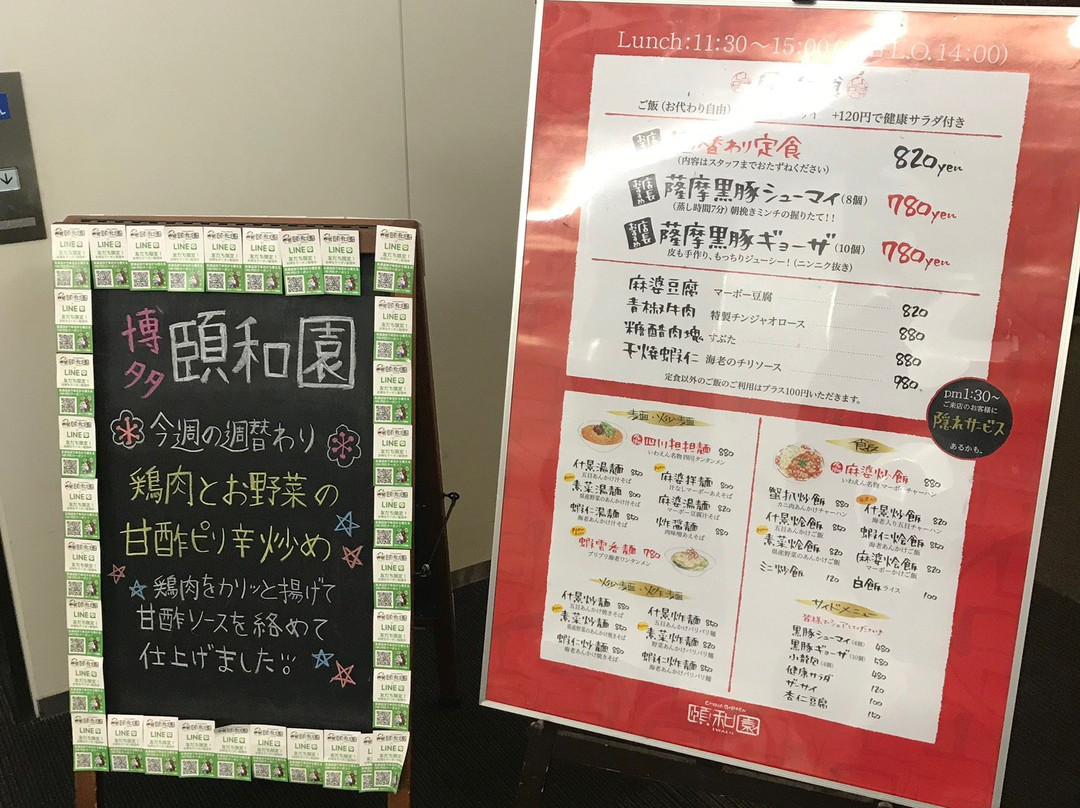 博多
頤和園
今週の週替わり
鶏肉とお野菜の
甘酢ピリ辛炒め
鶏肉をカリッと揚げて
甘酢ソースを絡めて
仕上げました
LINE
友だち限定!
Lunch:11:30～15:00
L.O.14:00)
ご飯(お代わり自由)
+120円で健康サラダ付き
替わり定食 820yen
(内容はスタッフまでおたずねください)
店長おすすめ
薩摩黒豚シューマイ(8個) 780yen
(蒸し時間7分)朝挽きミンチの握りたて!!
店長おすすめ
薩摩黒豚ギョーザ(10個) 780yen
皮も手作り、もっちりジューシー!(ニンニク抜き)
麻婆豆腐 マーボー豆腐 820
青椒牛肉 特製チンジャオロース 880
糖醋肉塊 すぶた 880
干焼蝦仁 海老のチリソース 980
定食以外のご飯のご利用はプラス100円いただきます。
pm1:30～
ご来店のお客様に
隠れサービス
あるかも。
四川担担麺 880
いわえん名物四川タンタンメン
什景湯麺 880
五目あんかけ汁そば
素菜湯麺 800
県産野菜のあんかけ汁そば
蝦仁湯麺 850
海老あんかけ汁そば
蝦雲呑麺 780
プリプリ海老ワンタンメン
麻婆拌麺 820
汁なしマーボーあえそば
麻婆湯麺 820
マーボー豆腐汁そば
炸醤麺 820
肉味噌あえそば
什景炒麺 880
五目あんかけ焼きそば
素菜炒麺 800
県産野菜のあんかけ焼きそば
蝦仁炒麺 850
海老あんかけ焼きそば
什景炸麺 880
五目あんかけパリパリ麺
素菜炸麺
野菜あんかけパリパリ麺
蝦仁炸麺
海老あんかけパリパリ麺
食飯
麻婆炒飯 880
いわえん名物 マーボーチャーハン
蟹扒炒飯 880
カニ肉あんかけチャーハン
什景烩飯 820
五目あんかけご飯
素菜烩飯
県産野菜のあんかけご飯
ミニ炒飯 120
什景炒飯 820
海老入り五目チャーハン
蝦仁烩飯 820
海老あんかけご飯
麻婆烩飯 820
マーボーかけご飯
白飯 ライス 100
サイドメニュー
黒豚シューマイ(4個) 480
黒豚ギョーザ(10個) 580
小籠包(4個) 480
健康サラダ 120
ザーサイ 100
杏仁豆腐 150
頤和園
IWAEN